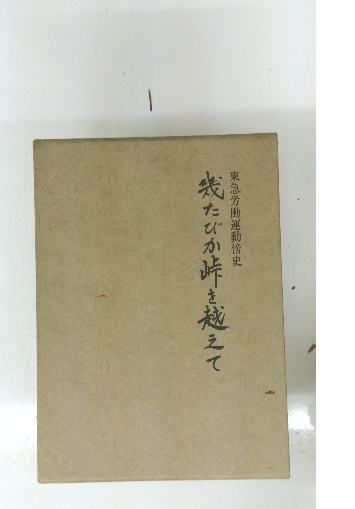 東急労働運動傍史
幾たびか峠を越えて